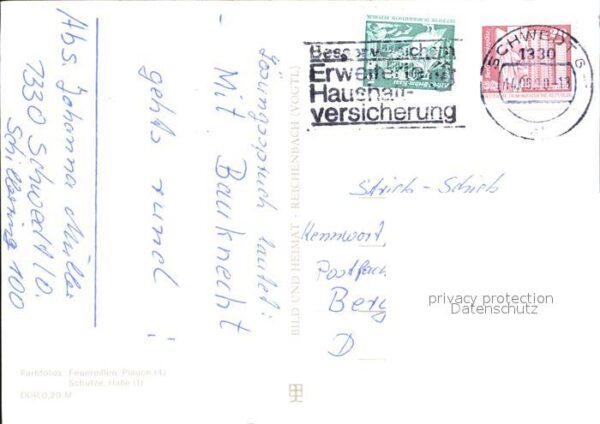 Abs. Johanna Müller
1330 Schwedt/O.
Schillerring 100
Lösungsspruch lautet:
- Mit Bauknecht
gehts rund !
BILD UND HEIMAT · REICHENBACH (VOGTL)
Farbfotos: Feuereißen, Plauen (4)
Schütze, Halle (1)
DDR 0,20 M
Besser versichern
Erweiterte
Haushalt-
versicherung
SCHWEDT 6
1330
DEUTSCHE DEMOKRATISCHE REPUBLIK
Strich-Schieb
Kennwort
Postfach
Berg
D
privacy protection
Datenschutz